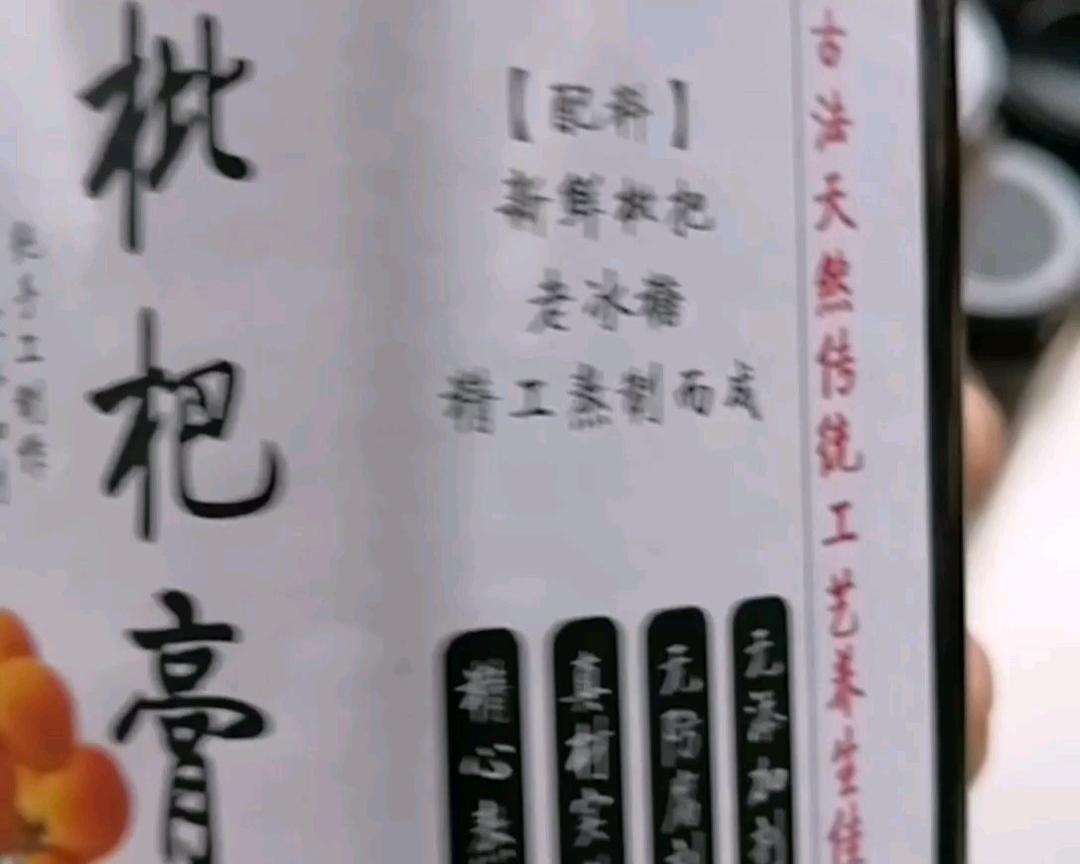 枇杷膏
【配料】
新鲜枇杷
老冰糖
精工蒸制而成
精心
真材实
无防腐
无添加剂
古法天然传统工艺养生佳
手工制作